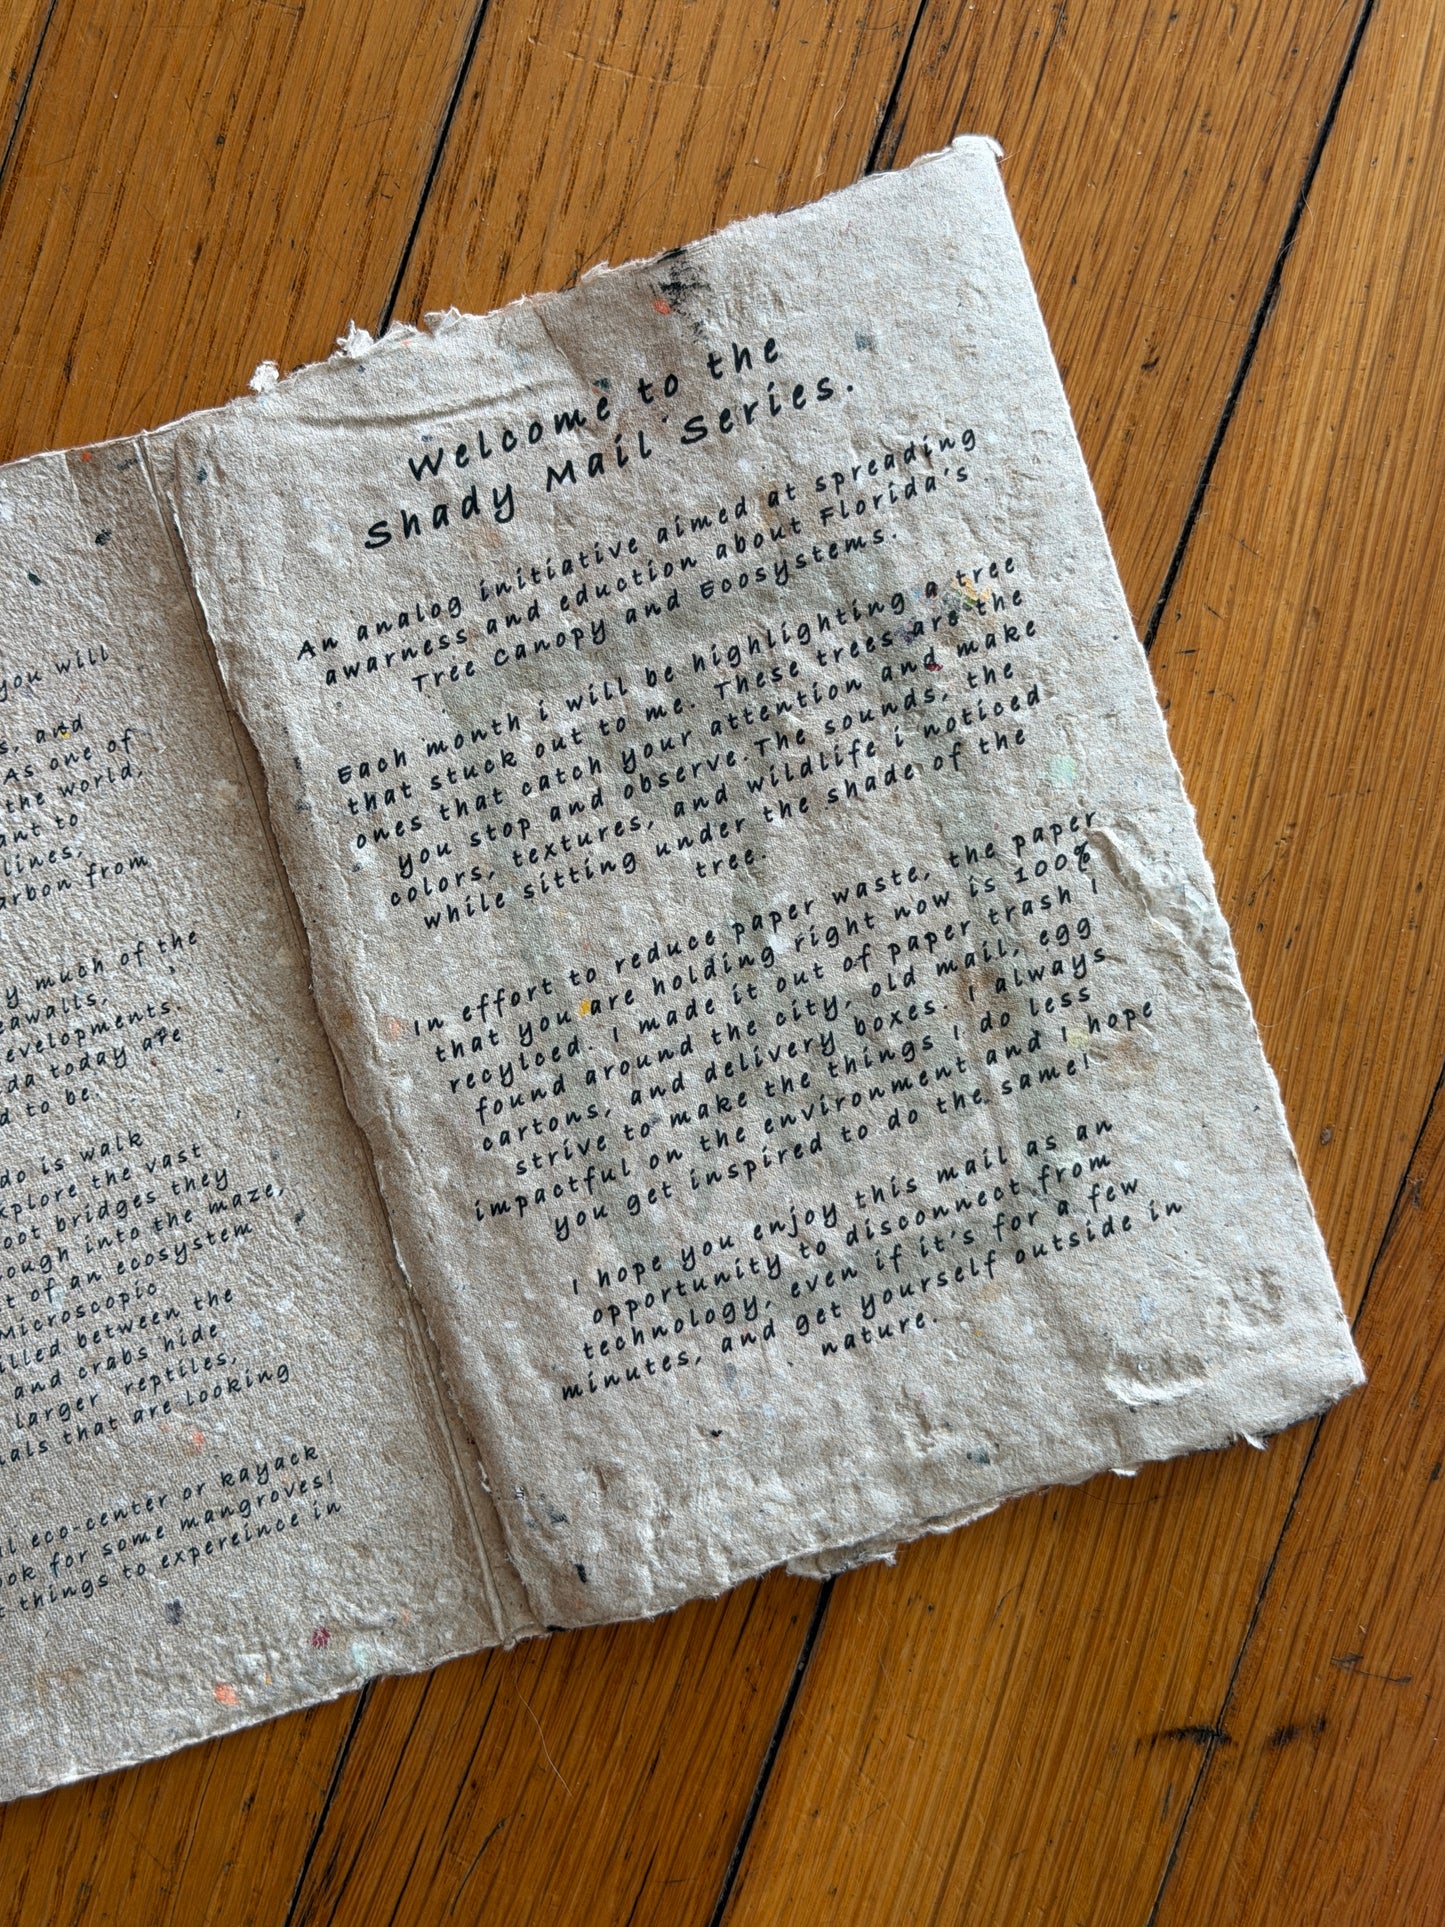 you will
s, and
As one of
the world,
ant to
lines,
arbon from
y much of the
eawalls,
evelopments.
da today are
d to be.
do is walk
xplore the vast
oot bridges they
ough into the maze,
t of an ecosystem
Microscopic
illed between the
and crabs hide
larger reptiles,
als that are looking
al eco-center or kayack
ook for some mangroves!
t things to expereince in
Welcome to the
Shady Mail Series.
An analog initiative aimed at spreading
awarness and eduction about Florida's
Tree Canopy and Ecosystems.
Each month i will be highlighting a tree
that stuck out to me. These trees are the
ones that catch your attention and make
you stop and observe.The sounds, the
colors, textures, and wildlife i noticed
while sitting under the shade of the
tree.
In effort to reduce paper waste, the paper
that you are holding right now is 100%
recylced. I made it out of paper trash I
found around the city, old mail, egg
cartons, and delivery boxes. I always
strive to make the things I do less
impactful on the environment and I hope
you get inspired to do the same!
I hope you enjoy this mail as an
opportunity to disconnect from
technology, even if it's for a few
minutes, and get yourself outside in
nature.